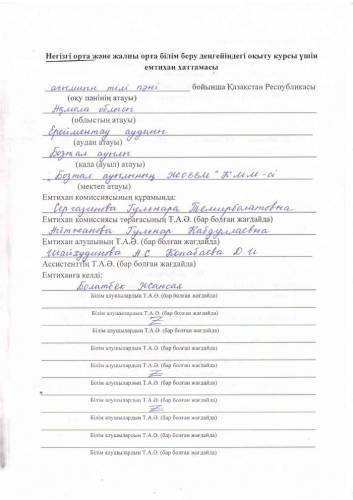 Негізгі орта және жалпы орта білім беру деңгейіндегі оқыту курсы үшін
емтихан хаттамасы
ағылшын тілі пәні бойынша Қазақстан Республикасы
(оқу пәнінің атауы)
Ақмола облысы
(облыстың атауы)
Ерейментау ауданы
(аудан атауы)
Бозтал ауылы
(қала (ауыл) атауы)
"Бозтал ауылының ЖОББМ" КММ-сі
(мектеп атауы)
Емтихан комиссиясының құрамында:
Сергазинова Гульнара Темирболатовна
Емтихан комиссиясы төрағасының Т.А.Ә. (бар болған жағдайда)
Айтжанова Гульнар Кабдуллаевна
Емтихан алушының Т.А.Ә. (бар болған жағдайда)
Шайхудинова А С Копабаева Д И
Ассистенттің Т.А.Ә. (бар болған жағдайда)
Емтиханға келді:
Болатбек Жансая
Білім алушылардың Т.А.Ә. (бар болған жағдайда)
Білім алушылардың Т.А.Ә. (бар болған жағдайда)
Z
Білім алушылардың Т.А.Ә. (бар болған жағдайда)
Білім алушылардың Т.А.Ә. (бар болған жағдайда)
Білім алушылардың Т.А.Ә. (бар болған жағдайда)
Z
Білім алушылардың Т.А.Ә. (бар болған жағдайда)
Білім алушылардың Т.А.Ә. (бар болған жағдайда)
Z
Білім алушылардың Т.А.Ә. (бар болған жағдайда)
Білім алушылардың Т.А.Ә. (бар болған жағдайда)
Білім алушылардың Т.А.Ә. (бар болған жағдайда)